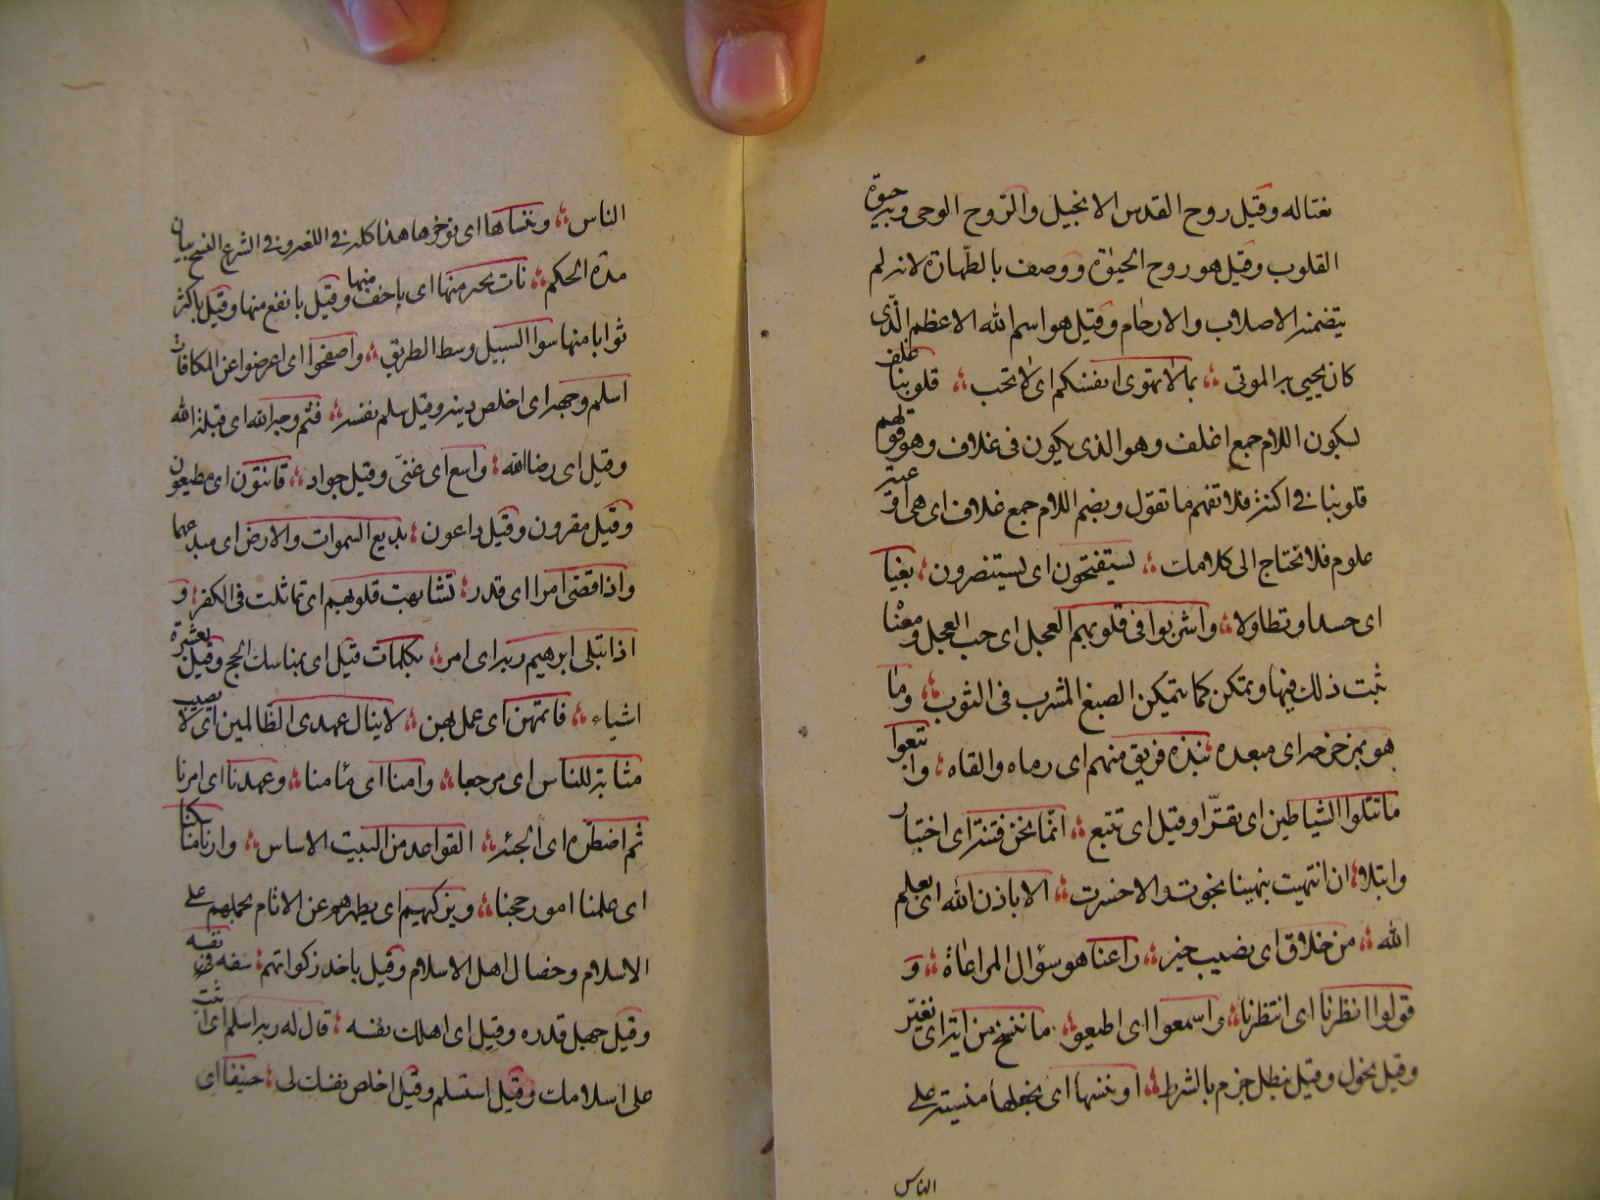 تعالى له وقيل روح القدس الانجيل والروح الوحى وبه حيوة
القلوب وقيل هو روح الحيوة ووصف بالطهارة لانه لم
يتضمنه الاصلاب والارحام وقيل هو اسم الله الاعظم الذى
كان يحيى به الموتى بما لا تهوى انفسكم اى لا تحب قلوبنا غلف
بسكون اللام جمع اغلف وهو الذى يكون فى غلاف وهو قولهم
قلوبنا فى اكنة فلا تفهم ما تقول وبضم اللام جمع غلاف اى هى اوعية
علوم فلا تحتاج الى كلامك يستفتحون اى يستنصرون بغيا
اى حسدا وتطاولا واشربوا فى قلوبهم العجل اى حب العجل ومعناه
ثبت ذلك فيها وتمكن كما يتمكن الصبغ المشرب فى الثوب وما
هو بمزحزحه اى مبعده نبذه فريق منهم اى رماه والقاه واتبعوا
ما تتلوا الشياطين اى تقرا وقيل اى تتبع انما نحن فتنة اى اختبار
وابتلاء ان انتهيت بنهينا نجوت والا خسرت الا باذن الله اى بعلم
الله من خلاق اى نصيب خير راعنا هو سؤال المراعاة و
قولوا انظرنا اى انتظرنا واسمعوا اى اطيعوا ما ننسخ من اية اى نغير
وقيل نحول وقيل نبطل جزم بالشرط او ننسها اى نجعلها منسية على
الناس
الناس وننساها اى نوخرها هذا كله فى اللغة وفى الشرع النسخ بيان
مدة الحكم نات بخير منها اى باخف منها وقيل بانفع منها وقيل باكثر
ثوابا منها سوا السبيل وسط الطريق واصفحوا اى اعرضوا عن المكافات
اسلم وجهه اى اخلص دينه وقيل سلم نفسه فثم وجه الله اى قبلة الله
وقيل اى رضا الله واسع اى غنى وقيل جواد قانتون اى مطيعون
وقيل مقرون وقيل داعون بديع السموات والارض اى مبدعهما
واذا قضى امرا اى قدر تشابهت قلوبهم اى تماثلت فى الكفر و
اذ ابتلى ابرهيم ربه اى امر بكلمات قيل اى بمناسك الحج وقيل بعشرة
اشياء فاتمهن اى عمل بهن لا ينال عهدى الظالمين اى لا يصيب
مثابة للناس اى مرجعا وامنا اى مأمنا وعهدنا اى امرنا
ثم اضطره اى الجئه القواعد من البيت الاساس وارنا مناسكنا
اى علمنا امور حجنا ويزكيهم اى يطهرهم عن الاثام بحملهم على
الاسلام وخصال اهل الاسلام وقيل باخذ زكواتهم سفه نفسه
وقيل جهل قدره وقيل اى اهلك نفسه قال له ربه اسلم اى اثبت
على اسلامك وقيل استسلم وقيل اخلص نفسك لى حنيفا اى